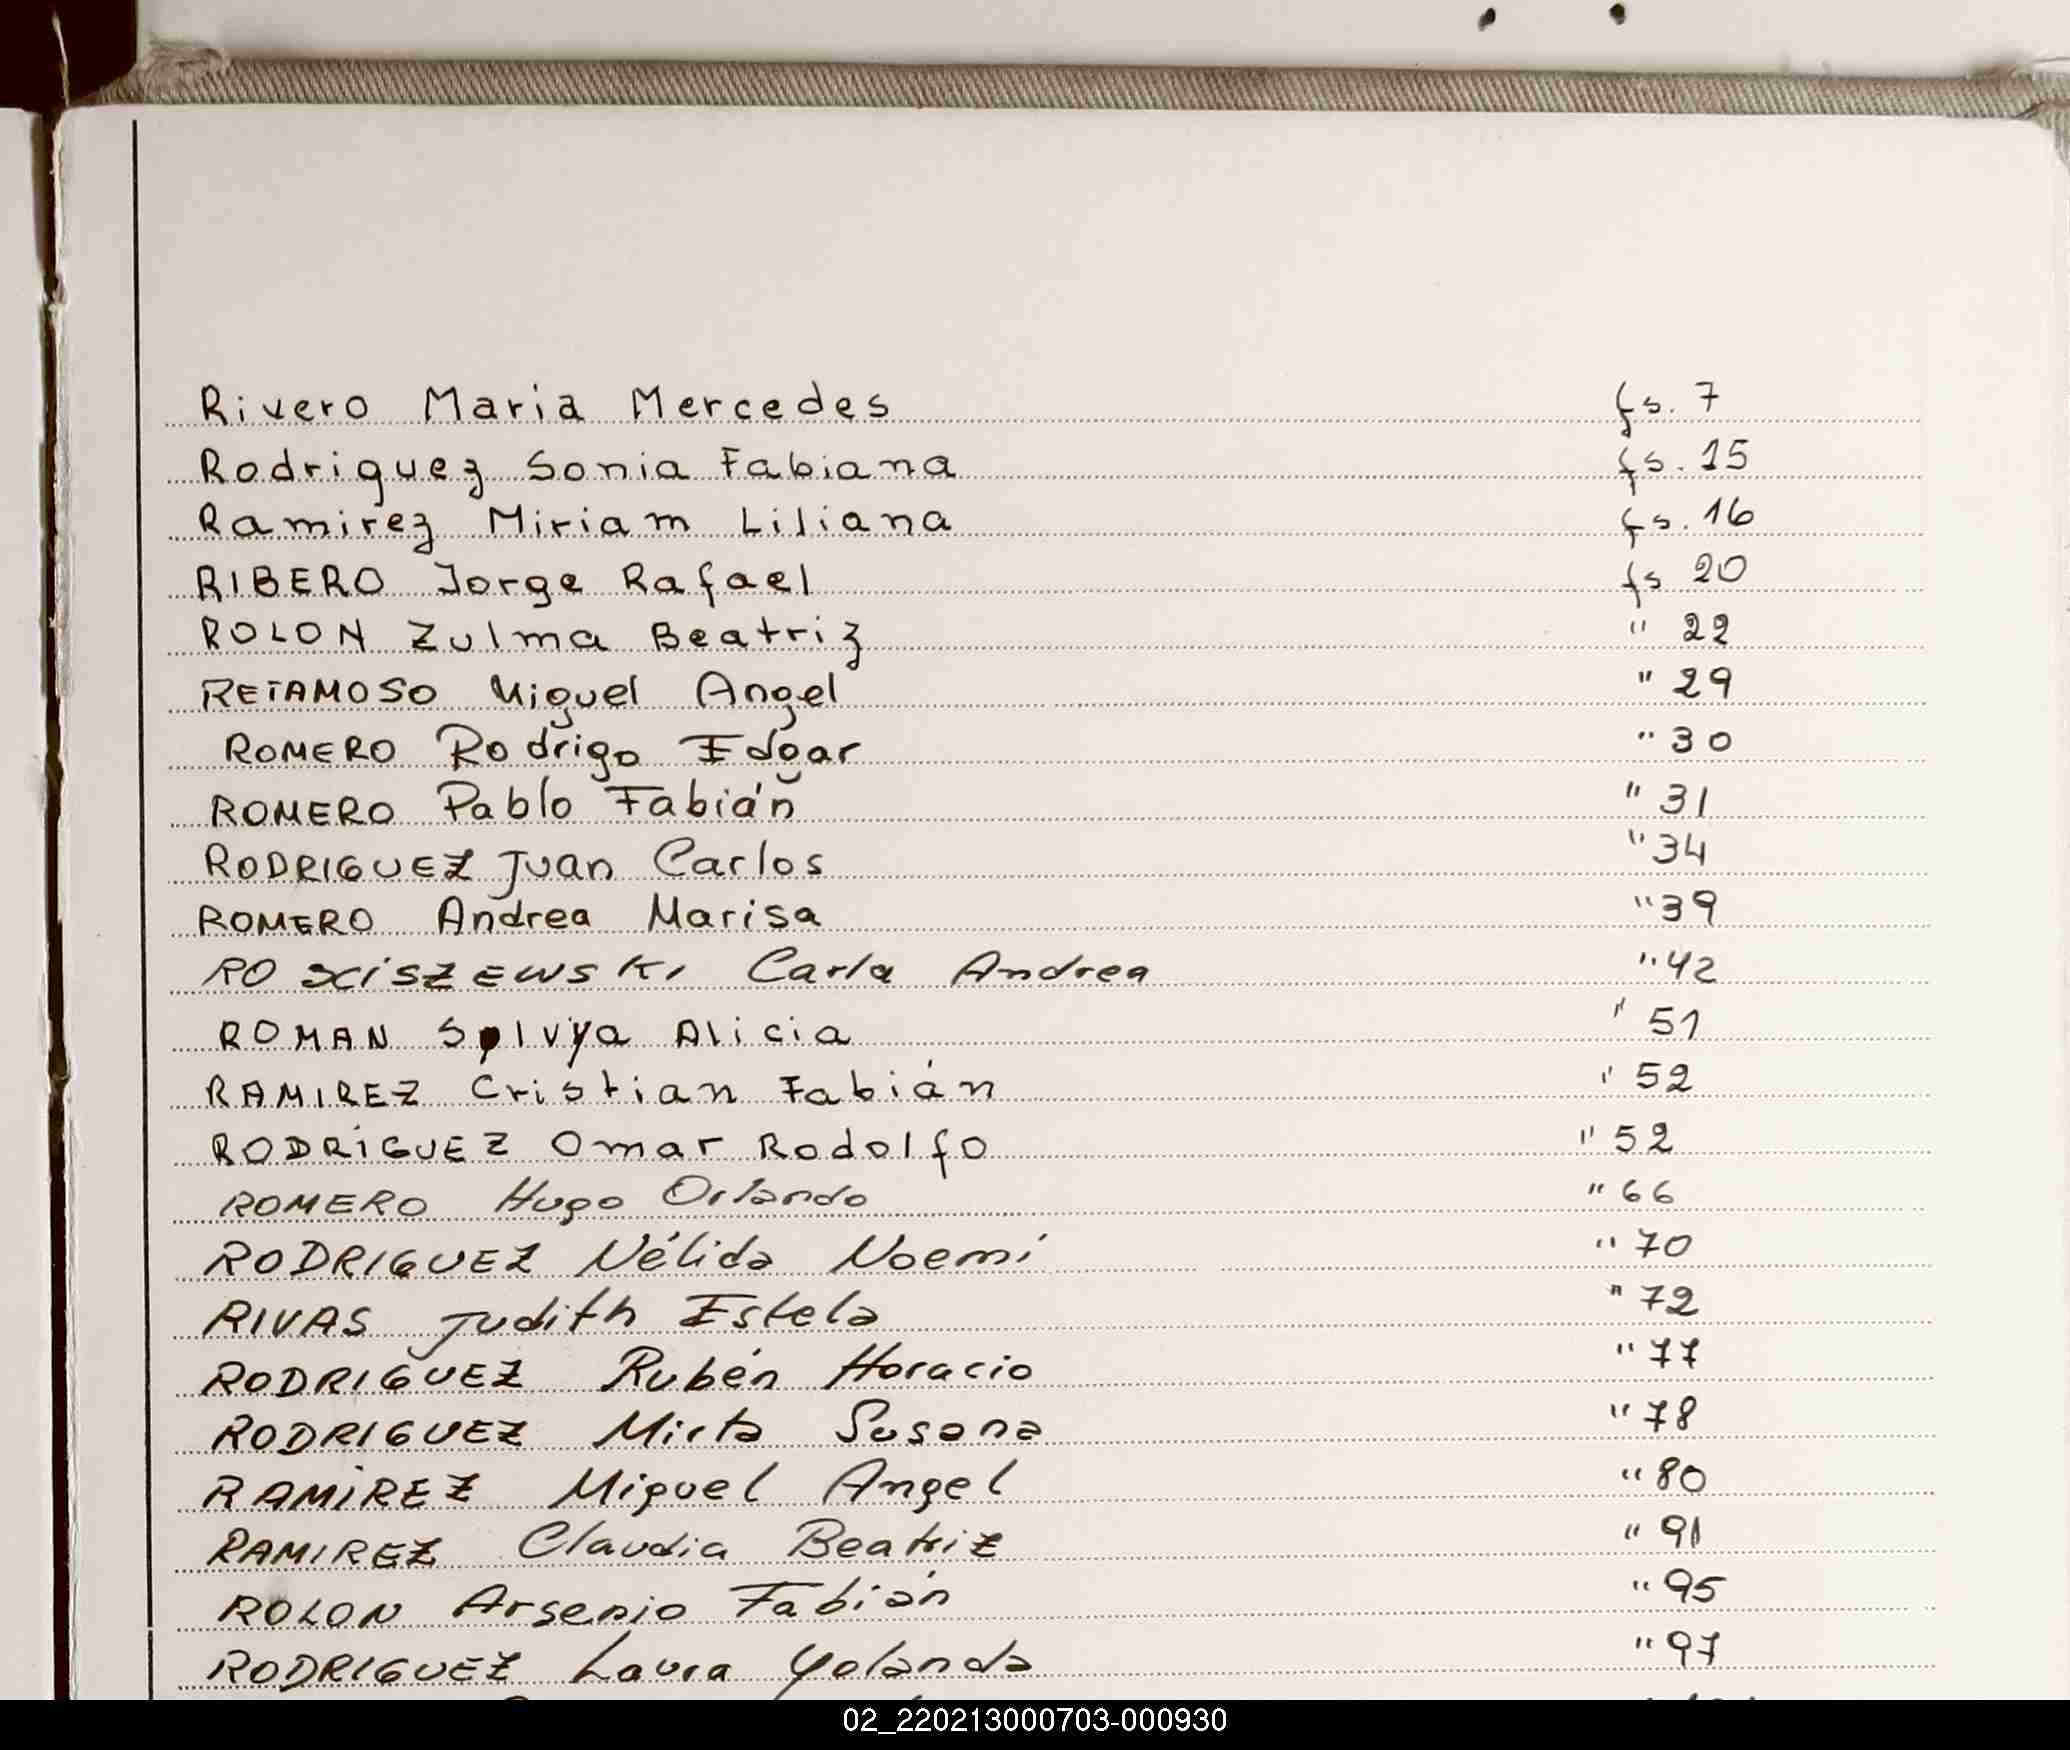 Rivero Maria Mercedes fs. 7
Rodriguez Sonia Fabiana fs. 15
Ramirez Miriam Liliana fs. 16
RIBERO Jorge Rafael fs 20
ROLON Zulma Beatriz " 22
RETAMOSO Miguel Angel " 29
ROMERO Rodrigo Edgar " 30
ROMERO Pablo Fabián " 31
RODRIGUEZ Juan Carlos " 34
ROMERO Andrea Marisa " 39
Carla Andrea " 42
ROMAN Alicia " 51
RAMIREZ Cristian Fabián " 52
RODRIGUEZ Omar Rodolfo " 52
ROMERO Hugo Orlando " 66
RODRIGUEZ Nélida Noemí " 70
RIVAS Judith Estela " 72
RODRIGUEZ Rubén Horacio " 77
RODRIGUEZ Mirta Susana " 78
RAMIREZ Miguel Angel " 80
RAMIREZ Claudia Beatriz " 91
ROLON Arsenio Fabián " 95
RODRIGUEZ Laura Yolanda " 97
02_220213000703-000930